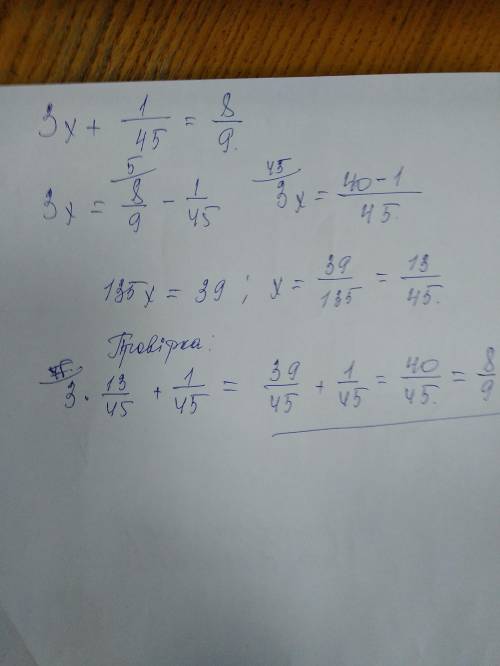 3x + 1/45 = 8/9.
3x = 5/ 8/9 - 1/45   45/ 3x = (40-1)/45.
135x = 39 ; x = 39/135 = 13/45.
Провірка:
3 · 13/45 + 1/45 = 39/45 + 1/45 = 40/45. = 8/9